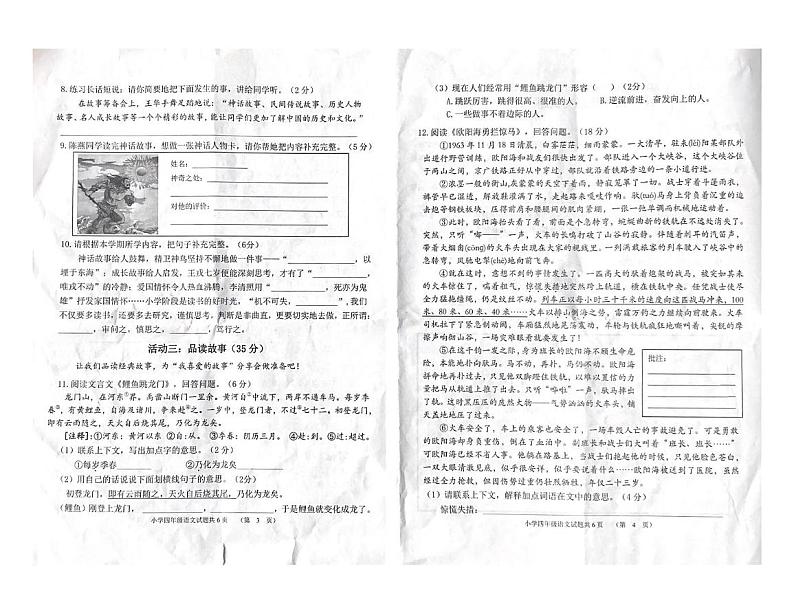 8. 练习长话短说：请你简要地把下面发生的事，讲给同学听。（2分）
在故事筹备会上，王华手舞足蹈地说：“神话故事、民间传说故事、历史人物
故事、名人成长故事等一个个精彩的故事，能让同学们更加了解中国的历史和文化。”
9. 陈燕同学读完神话故事，想做一张神话人物卡，请你帮她把内容补充完整。（5分）
姓名：
神奇之处：
对他的评价：
10. 请根据本学期所学内容，把句子补充完整。（6分）
神话故事给人鼓舞，精卫鸟坚持不懈地做一件事——“ ，以
堙于东海”；成长故事给人启发，王戎七岁便能深刻思考，才有了“ ，
唯我不动”的冷静；爱国情怀令人热血沸腾，李清照用“ ，死亦为鬼
雄”抒发家国情怀……小学阶段是读书的好时光，“机不可失， ”，我们
不仅要多读书，还要多去研究，谨慎思考，判断是非曲直，更要切实去做。正所谓：
，审问之，慎思之， ，笃行之。
活动三：品读故事（35分）
让我们品读经典故事，为“我喜爱的故事”分享会做准备吧！
11. 阅读文言文《鲤鱼跳龙门》，回答问题。（6分）
龙门山，在河东①界。禹凿山断门一里余。黄河自②中流下，两岸不通车马。每岁季
春③，有黄鲤鱼，自海及诸川，争来赴④之。一岁中，登龙门者，不过⑤七十二。初登龙门，
即有云雨随之，天火自后烧其尾，乃化为龙矣。
[注释]:①河东：黄河以东 ②自：从。 ③季春：阴历三月。 ④赴：到；到达。 ⑤过：超过。
（1）联系上下文，写出加点字的意思。（2分）
①每岁季春 ②乃化为龙矣
（2）用自己的话说说下面划横线句子的意思。（2分）
初登龙门，即有云雨随之，天火自后烧其尾，乃化为龙矣。
（鲤鱼）刚登上龙门， ， ，于是鲤鱼就变化成龙了。
小学四年级语文试题共6页 （第 3 页）
（3）现在人们经常用“鲤鱼跳龙门”形容（ ）（2分）
A. 跳跃厉害，跳得很高、很准的人。 B. 逆流前进，奋发向上的人。
C. 一些做事不着边际的人。
12. 阅读《欧阳海勇拦惊马》，回答问题。（18分）
①1963年11月18日清晨，白雾茫茫，细雨蒙蒙。一大清早，驻耒(lěi)阳某部队外
出进行野营训练，欧阳海和战友们很快出发了。部队进入一个大峡谷，这个大峡谷位
于两山之间，京广铁路正好从中穿过，部队就沿着铁路旁边的一条小道行进。
②浓墨一般的衡山，灰蒙蒙的天空下着雨，静寂笼罩了一切。战士穿着斗篷雨衣，
裤管浸透了雨水，鞋洼软洼灌满了水，走起路来嘎吱作响。驮(tuó)马身上背负着沉重的迫
击炮等钢铁板块，压得前肩和腰腿间的肌肉蒙颤，一张一弛单调而机械地运动着。
③部队行进到峡谷拐弯处，这里的铁路有个急转弯，蜿蜒曲折的铁轨在不远处消失了。
突然，只听“嘟——”一声，火车的长鸣打破了山谷的寂静。伴随着刹耳的汽笛声，
带着大烟囱(cōng)的火车头出现在大家的视线里。一列满载旅客的列车驶入了峡谷中的
急转弯，风驰电掣(chè)地向前奔飞。
④就在这时，意想不到的事情发生了。一匹高大的驮着炮架的战马，被突如其来
的火车惊住了，喘着粗气，惊慌失措地跳到轨道中央。战士使劲全力拽住缰绳，但烈
马全身僵硬，仍是纹丝不动。列车正以每小时三十千米的速度向这匹战马冲来，100
米、80米、60米、40米……火车以排山倒海之势，轰隆隆、轰隆隆越来越近。火车司
机拉上了紧急制动闸，车厢猛然地晃荡不已，惊醒了车厢里的乘客，火车尖厉的摩
擦声响彻山谷，一场灾难眼看就要发生了！
⑤在这千钧一发之际，身为班长的欧阳海顾不得生命危
险，本能地扑向驮马。马不动，再一扑，马仍不动。欧阳海
拼命地再扑过去，只见他双脚紧扣住铁轨，以难以置信的力
量把马从轨道上推了出去。只听“咻啦”一声，驮马摔出了
铁轨。这里黑压压的庞然大物——气势汹汹的火车头，铺
天盖地地压了过来。
批注：
⑥火车安全了，车上的乘客也安全了，一场车毁人亡的事故避免了。可勇敢的
欧阳海却身负重伤，倒在了血泊中。副班长和战士们大叫着“班长、班长……”
可班长已经不省人事。他躺在路基上，当战士们拥过来时，只见他脸色苍白，
一双大眼清澈无恨，似乎想说些什么……欧阳海被送到了医院，虽然
经过全力抢救，但因伤势过重仍壮烈牺牲，年仅二十三岁。
（1）请联系上下文，解释加点词语在文中的意思。（4分）
惊慌失措：
小学四年级语文试题共6页 （第 4 页）